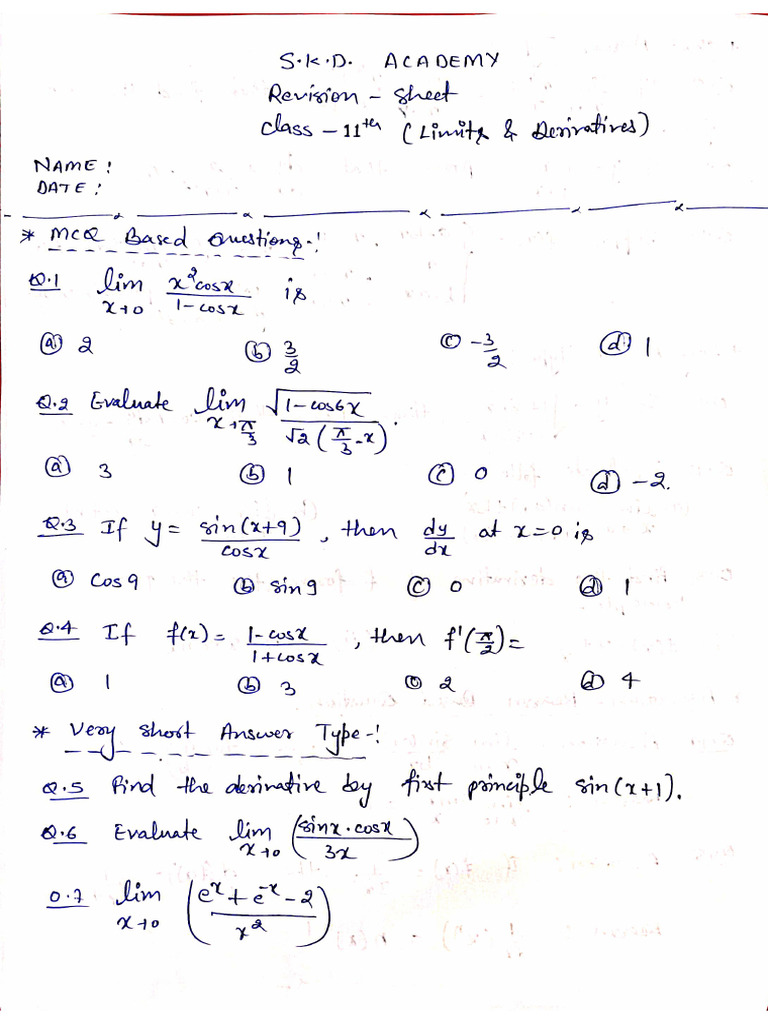 S.K.D. ACADEMY
Revision - Sheet
Class - 11th (Limits & Derivatives)
NAME:
DATE:
* MCQ Based Questions-!
Q.1 lim x→0 x²cosx / 1-cosx is
(a) 2 (b) 3/2 (c) -3/2 (d) 1
Q.2 Evaluate lim x→π/3 √(1-cos6x) / √2(π/3-x).
(a) 3 (b) 1 (c) 0 (d) -2.
Q.3 If y = sin(x+9) / cosx, then dy/dx at x=0 is
(a) Cos9 (b) sin9 (c) 0 (d) 1
Q.4 If f(x) = 1-cosx / 1+cosx, then f'(π/2) =
(a) 1 (b) 3 (c) 2 (d) 4
* Very Short Answer Type-!
Q.5 Find the derivative by first principle sin(x+1).
Q.6 Evaluate lim x→0 (sinx.cosx / 3x)
Q.7 lim x→0 (eˣ+e⁻ˣ-2 / x²)